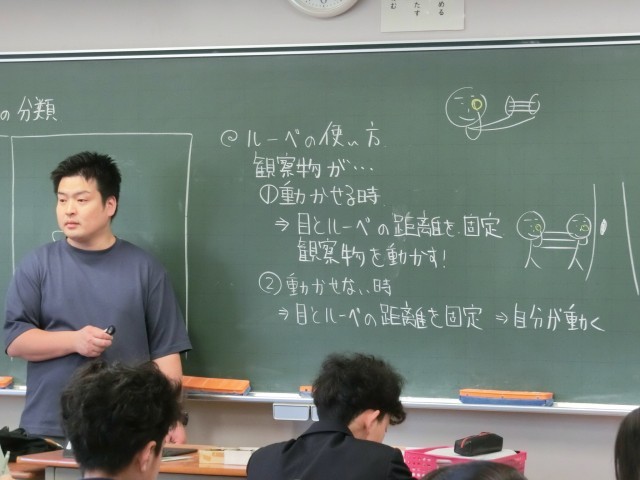 める
たす
む
の分類
◎ルーペの使い方
観察物が…
①動かせる時
⇒目とルーペの距離を固定
観察物を動かす!
②動かせない時
⇒目とルーペの距離を固定 ⇒自分が動く